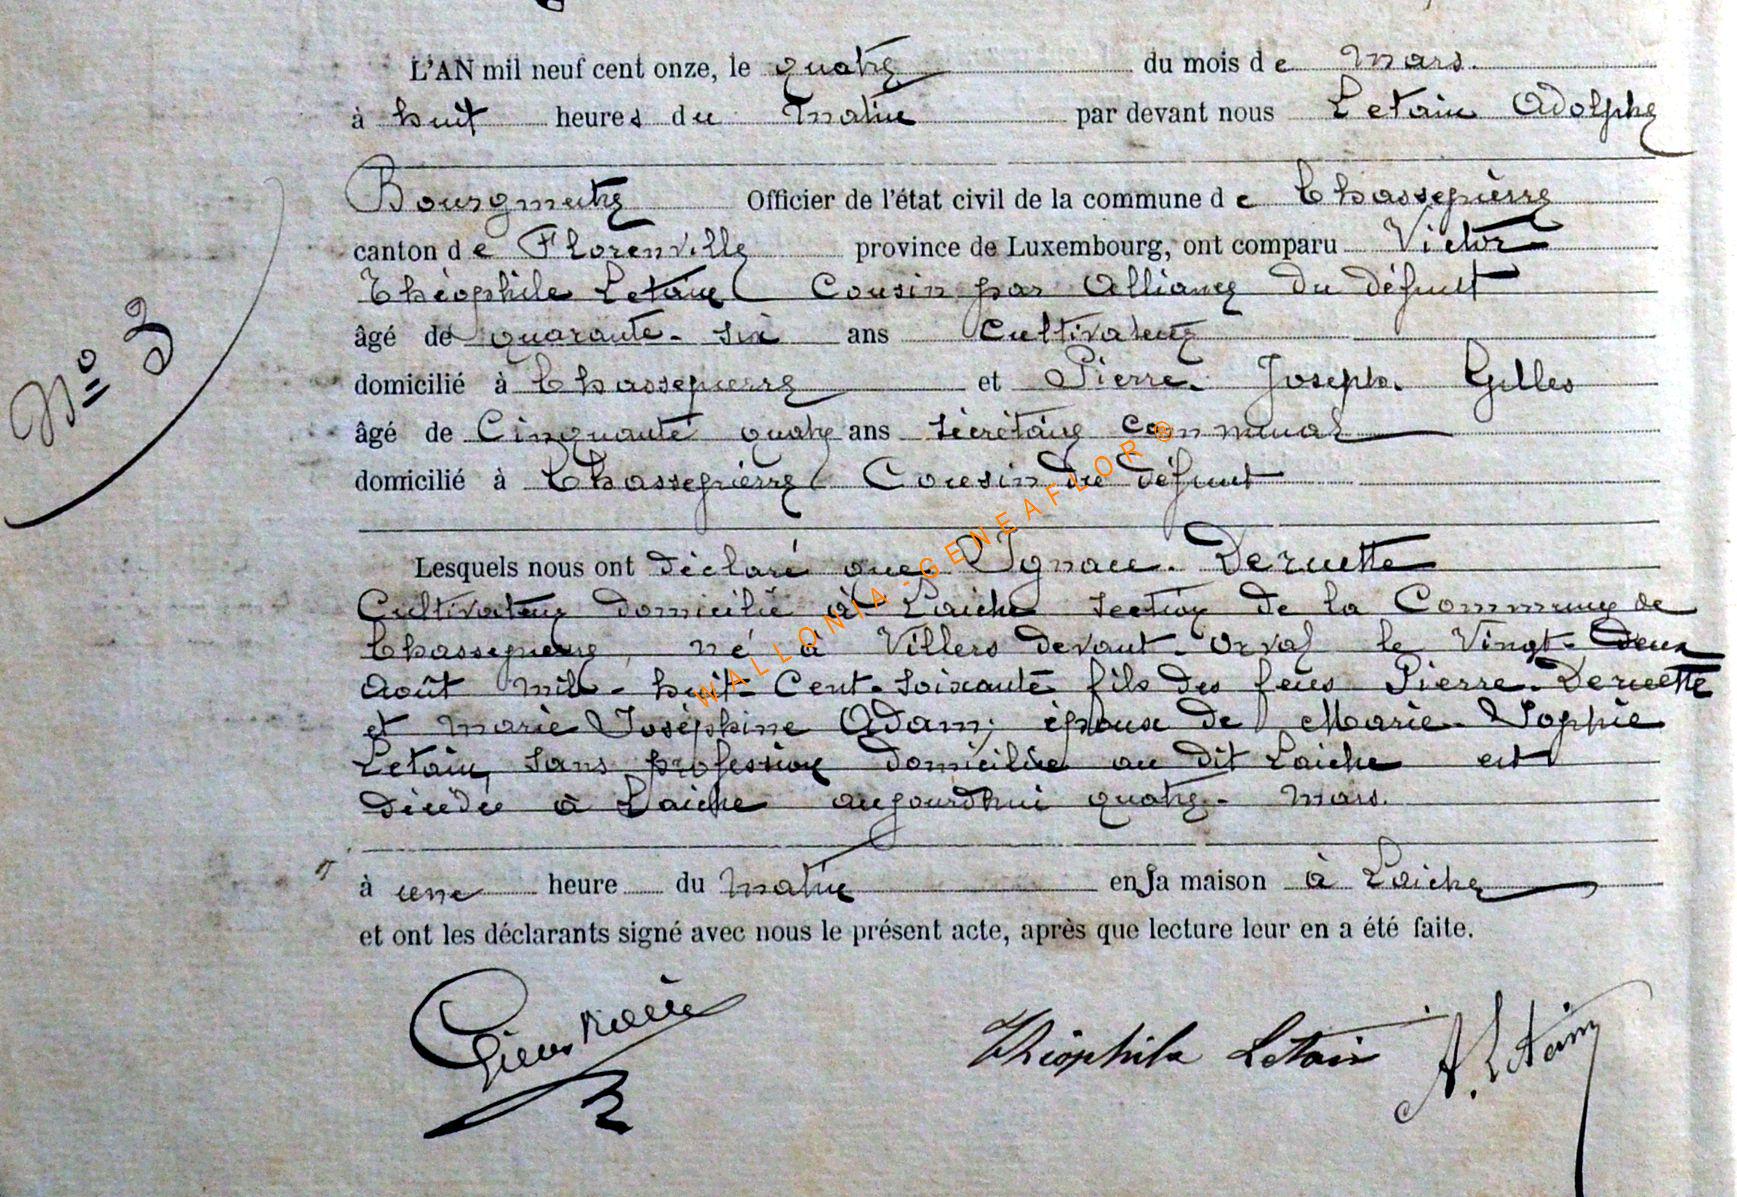 L'AN mil neuf cent onze, le quatre du mois de Mars.
à huit heures du Matin par devant nous Letain Adolphe
Bourgmestre Officier de l'état civil de la commune de Chassepierre
canton de Florenville province de Luxembourg, ont comparu Victor
Théophile Letain Cousin par Alliance du défunt
âgé de quarante-six ans Cultivateur
domicilié à Chassepierre et Pierre Joseph Gilles
âgé de Cinquante quatre ans sécrétaire Communal
domicilié à Chassepierre Cousin du défunt
N° 3
Lesquels nous ont déclaré que Ignace Deruette
Cultivateur domicilié à Laiche section de la Commune de
Chassepierre, né à Villers devant-Orval le Vingt-deux
Août mil-huit-Cent-soixante fils des feus Pierre Deruette
et Marie Joséphine Adam; époux de Marie-Sophie
Letain, sans profession domiciliée au dit Laiche est
décédé à Laiche aujourd'hui quatre-Mars.
à une heure du Matin en sa maison à Laiche
et ont les déclarants signé avec nous le présent acte, après que lecture leur en a été faite.
Théophile Letain A. Letain
WALLONIA-GENEAFLOR®